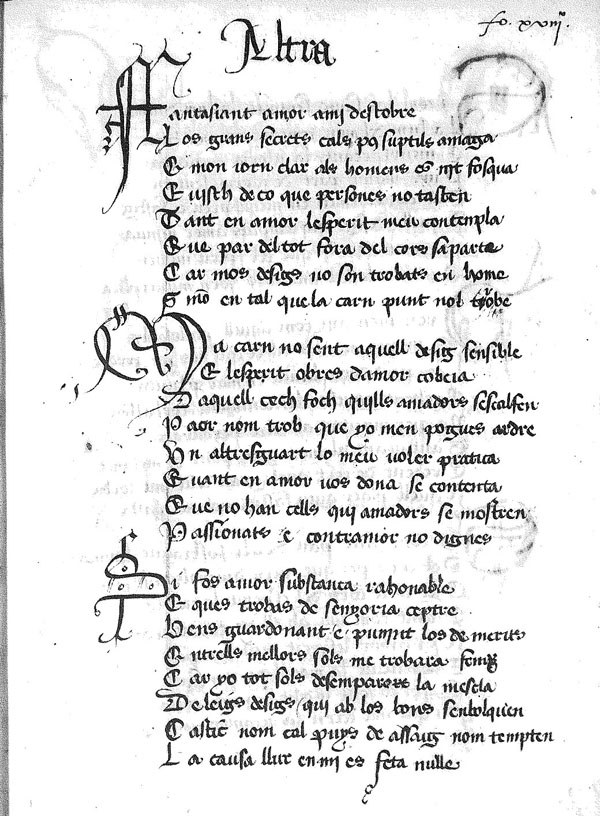 fo. xviij.
Altra
Fantasiant amor ami descobre
Los grans secrets cals pus suptils amaga
E mon iorn clar als homens es nit fosqua
E visch de co que persones no tasten
Tant en amor lesperit meu contempla
Que par del tot fora del cors saparte
Car mos desigs no son trobats en home
Sino en tal que la carn punt nol torbe
Ma carn no sent aquell desig sensible
E lesperit obres damor cobeia
Daquell cech foch quills amadors sescalfen
Paor nom trob que yo men pogues ardre
Un altresguart lo meu voler pratica
Quant en amor vos dona se contenta
Que no han cells qui amadors se mostren
Passionats e contramor no dignes
Si fos amor substanca rahonable
E ques trobas de senyoria ceptre
Bens guardonant e punint los de merits
Entrells mellors sols me trobara fenix
Car yo tot sols desempare la mescla
De leigs desigs qui ab los bons senbolquen
Castich nom cal puys de assaig nom tempten
La causa llur en mi es feta nulle